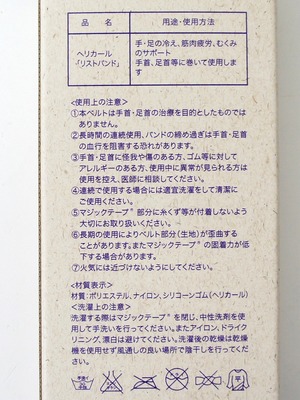 品名
用途・使用方法
ヘリカール
「リストバンド」
手・足の冷え、筋肉疲労、むくみ
のサポート
手首、足首等に巻いて使用しま
す
<使用上の注意>
①本ベルトは手首・足首の治療を目的としたものでは
ありません。
②長時間の連続使用、バンドの締め過ぎは手首・足首
の血行を阻害する恐れがあります。
③手首・足首に怪我や傷のある方、ゴム等に対して
アレルギーのある方、使用中に異常が見られる方は
使用を控え、医師に相談してください。
④連続で使用する場合には適宜洗濯をして清潔に
ご使用ください。
⑤マジックテープ®部分に糸くず等が付着しないよう
大切にお取り扱いください。
⑥長期の使用によりベルト部分(生地)が歪曲する
ことがあります。またマジックテープ®の固着力が低
下する場合があります。
⑦火気には近づけないようにしてください。
<材質表示>
材質:ポリエステル、ナイロン、シリコーンゴム(ヘリカール)
<洗濯上の注意>
洗濯する際はマジックテープ®を閉じ、中性洗剤を使
用して手洗いを行ってください。またアイロン、ドライク
リーニング、漂白は避けてください。洗濯後の乾燥は乾燥
機を使用せず風通しの良い場所で陰干しを行ってくだ
さい。